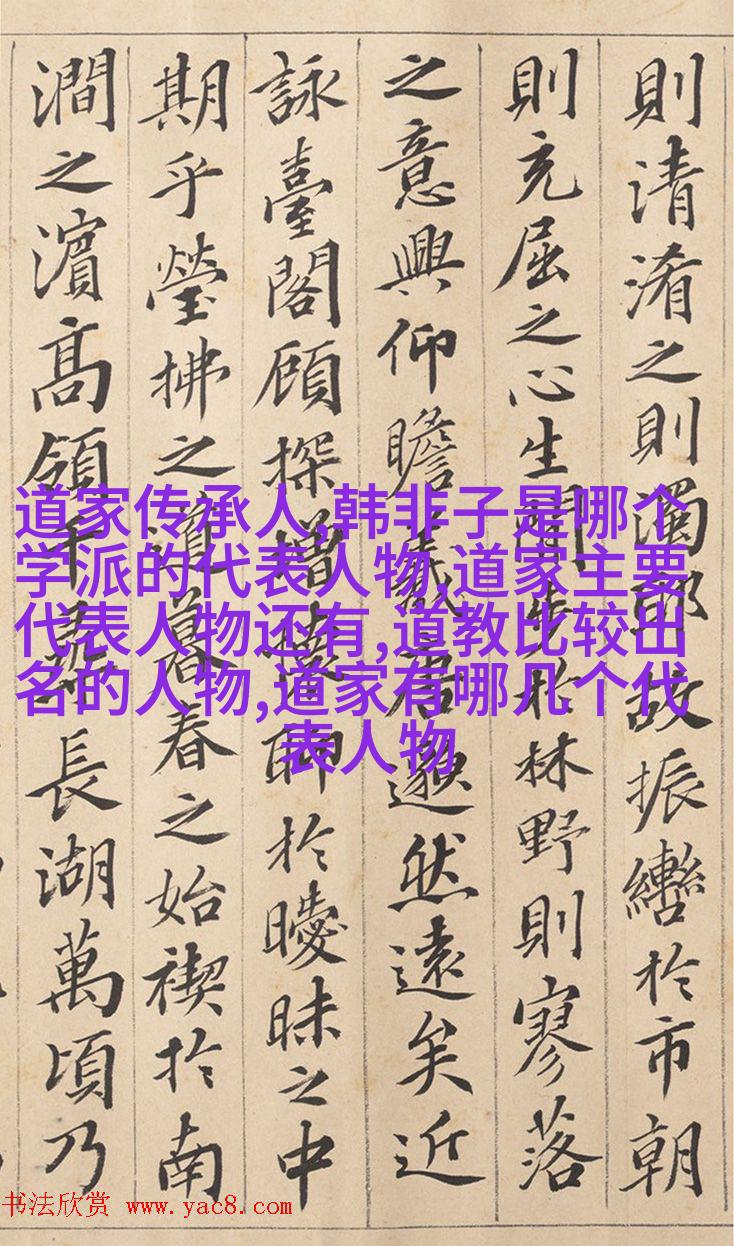 則清淆之則濁耶故振轡扵市朝
則充屈之心生閑步扵林野則寥落
之意興仰瞻羲唐邈然遠矣近
詠臺閣顧探增懷聊扵曖昧之中
期乎瑩拂之道暮春之始禊扵南
澗之濱髙領千尋長湖萬頃乃
道家传承人,韩非子是哪个
学派的代表人物,道家主要
代表人物还有,道教比较出
名的人物,道家有哪几个代
表人物
书法欣赏 www.yac8.com